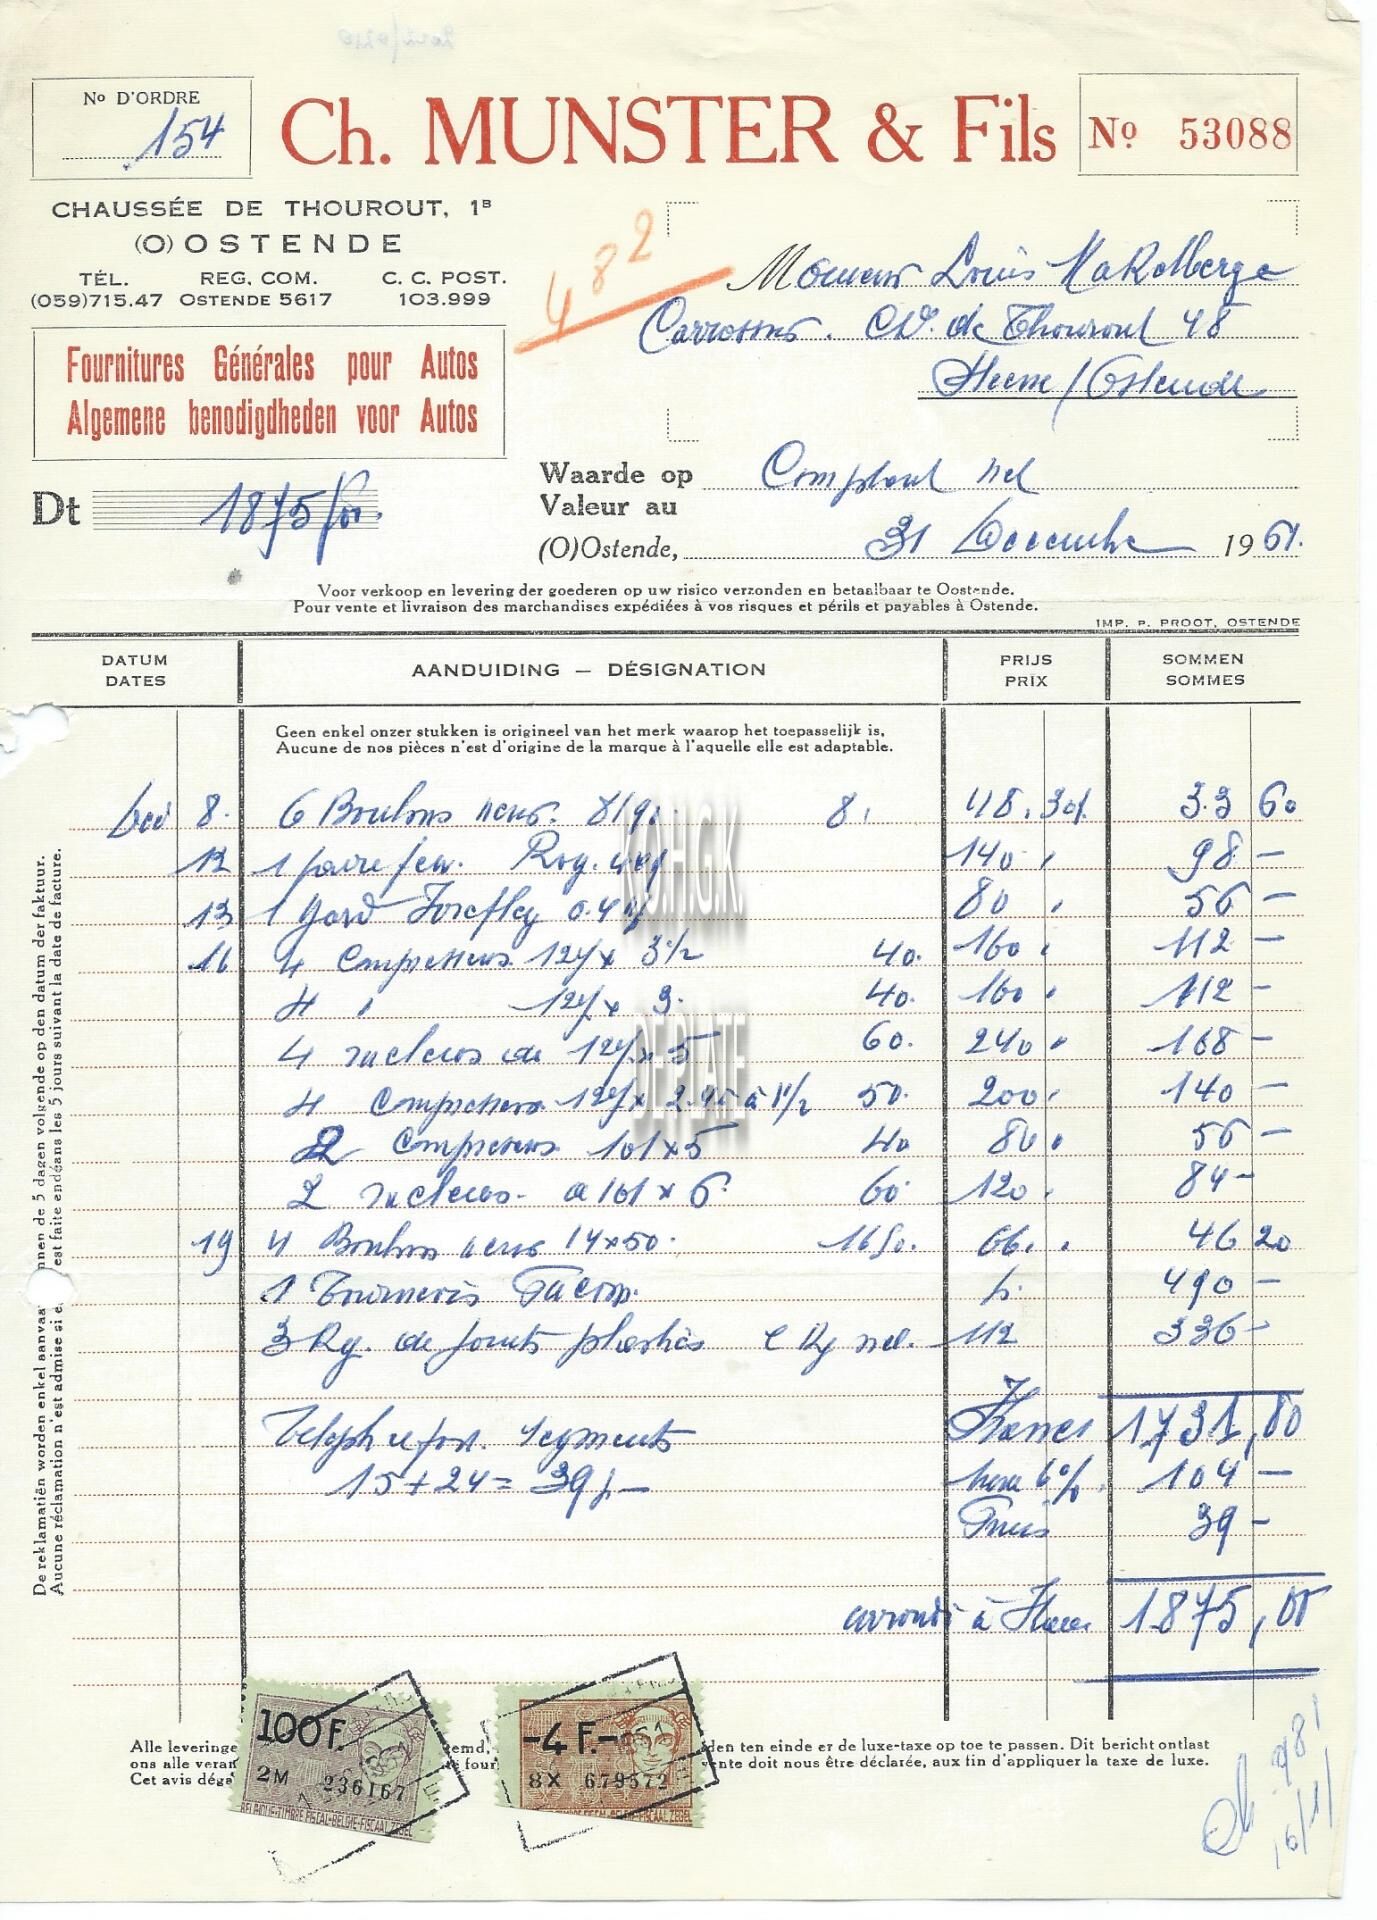 No D'ORDRE
154
Ch. MUNSTER & Fils
No 53088
CHAUSSÉE DE THOUROUT, 1B
(O) OSTENDE
TÉL. REG. COM. C. C. POST.
(059)715.47 OSTENDE 5617 103.999
482
Fournitures Générales pour Autos
Algemene benodigdheden voor Autos
Louis
de Thourout 48
/Ostende
Dt 1875
Waarde op
Valeur au
Comptant net
(O)Ostende, 31 Decembre 1961.
Voor verkoop en levering der goederen op uw risico verzonden en betaalbaar te Oostende.
Pour vente et livraison des marchandises expédiées à vos risques et périls et payables à Ostende.
IMP. P. PROOT, OSTENDE
DATUM AANDUIDING — DÉSIGNATION PRIJS SOMMEN
DATES PRIX SOMMES
Geen enkel onzer stukken is origineel van het merk waarop het toepasselijk is.
Aucune de nos pièces n'est d'origine de la marque à l'aquelle elle est adaptable.
8. 6 Boulons 8, 48, 30% 33 60
12 1 140 98 —
13 1 80 56 —
16 4 Compresseurs 127 x 3½ 40. 160 112 —
4 127 x 3. 40. 160 112 —
4 racleurs de 127 x 5 60. 240 168 —
4 50. 200 140 —
2 Compresseurs 101 x 5 40 80 56 —
2 racleurs. 101 x 6 60 120 84 —
19 4 Boulons 14x50. 1650. 66. 46 20
1 Tournevis Facom. 490 —
3 Kg. de joints plastics net. 112 336 —
Francs 1731,80
segments
15 + 24 = 39
taxe 6% 104 —
Frais 39 —
arrondi à 1875,00
De reklamatiën worden enkel aanvaa nnen de 5 dagen volgende op den datum der faktuur.
Aucune réclamation n'est admise si e est faite endéans les 5 jours suivant la date de facture.
K.O.H.G.K.
DE PLATE
Alle leveringe emd, den ten einde er de luxe-taxe op toe te passen. Dit bericht ontlast
ons alle veran e four vente doit nous être déclarée, aux fin d'appliquer la taxe de luxe.
Cet avis déga
100 F.
2M 236167
BELGIQUE-TIMBRE FISCAL-BELGIE-FISCAAL ZEGEL
-4 F.-
8X 679572